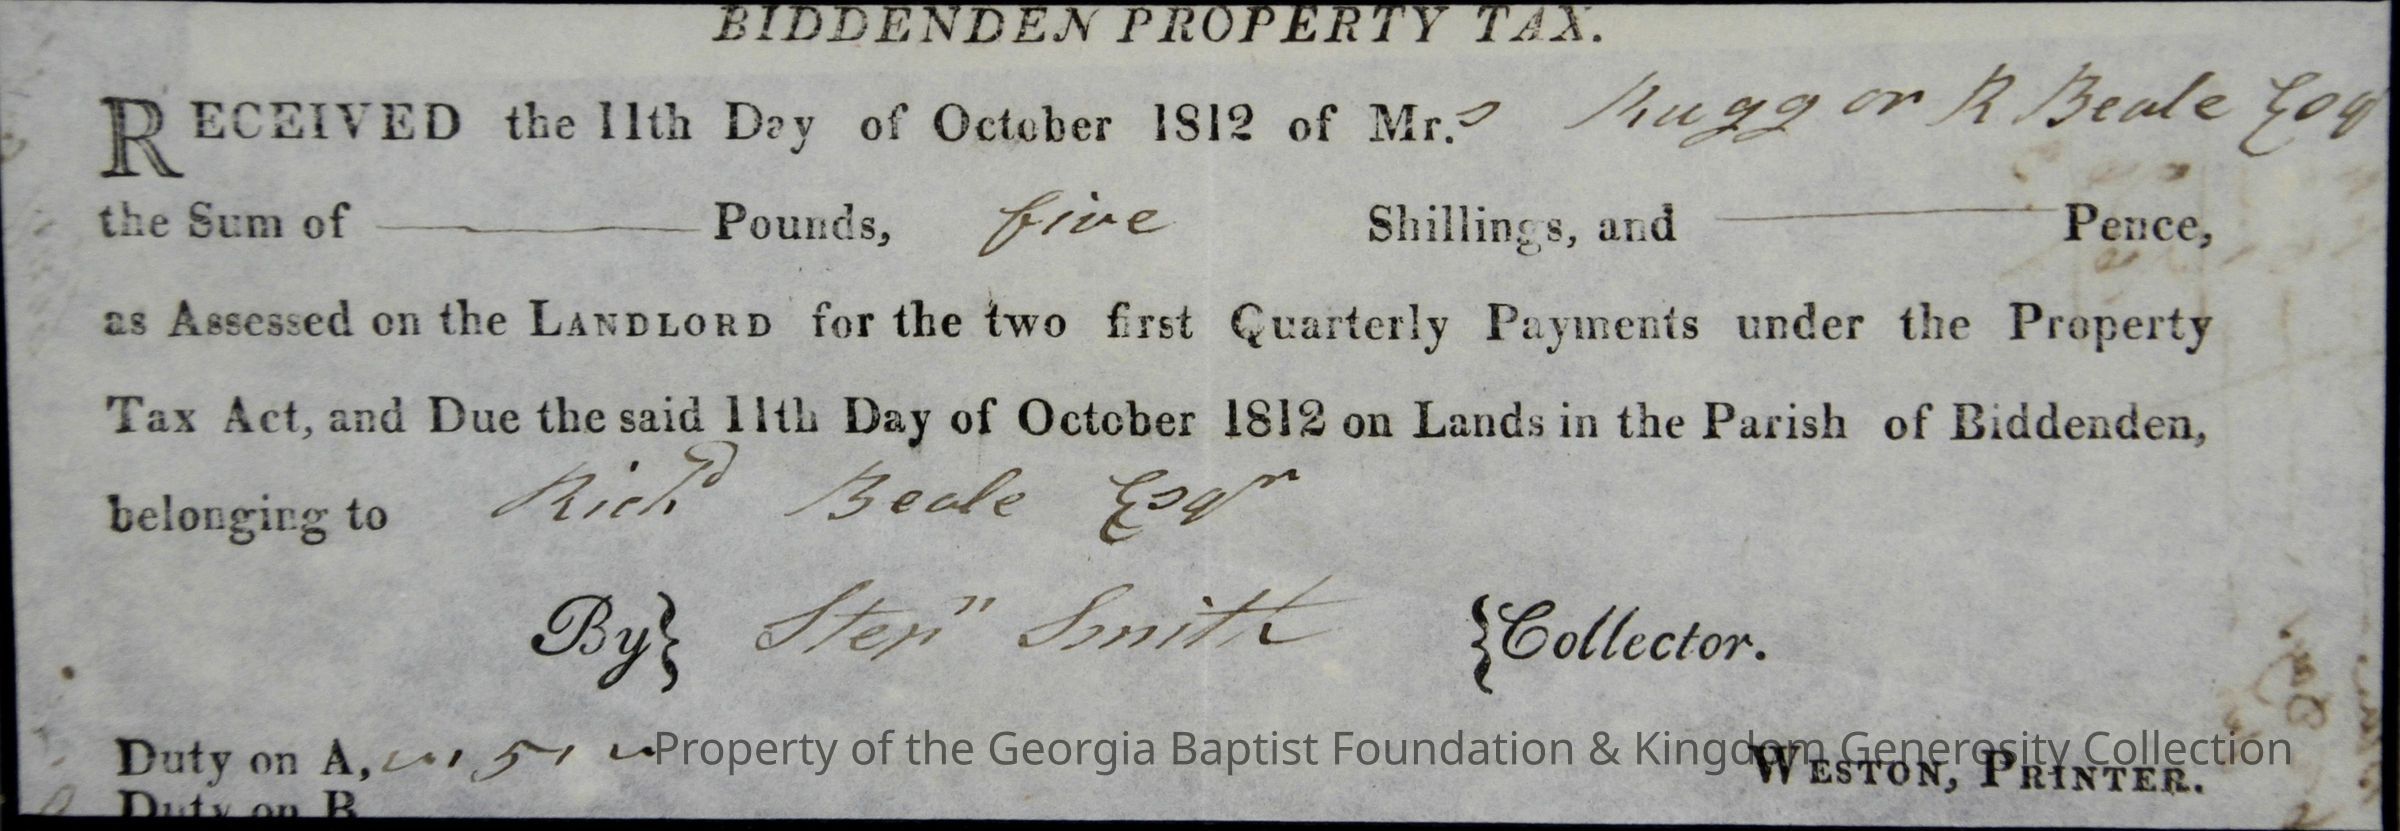 BIDDENDEN PROPERTY TAX.
RECEIVED the 11th Day of October 1812 of Mr.s Rugg or R Beale Esqr
the Sum of ——— Pounds, five Shillings, and ——— Pence,
as Assessed on the LANDLORD for the two first Quarterly Payments under the Property
Tax Act, and Due the said 11th Day of October 1812 on Lands in the Parish of Biddenden,
belonging to Richd Beale Esqr
By} Stepn Smith {Collector.
Duty on A, 5
Property of the Georgia Baptist Foundation & Kingdom Generosity Collection
WESTON, PRINTER.
Duty on B